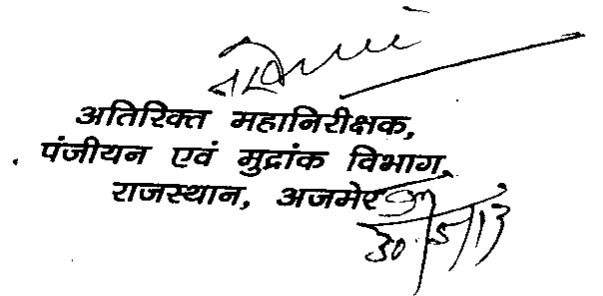 अतिरिक्त महानिरीक्षक,
पंजीयन एवं मुद्रांक विभाग,
राजस्थान, अजमेर
30/5/13